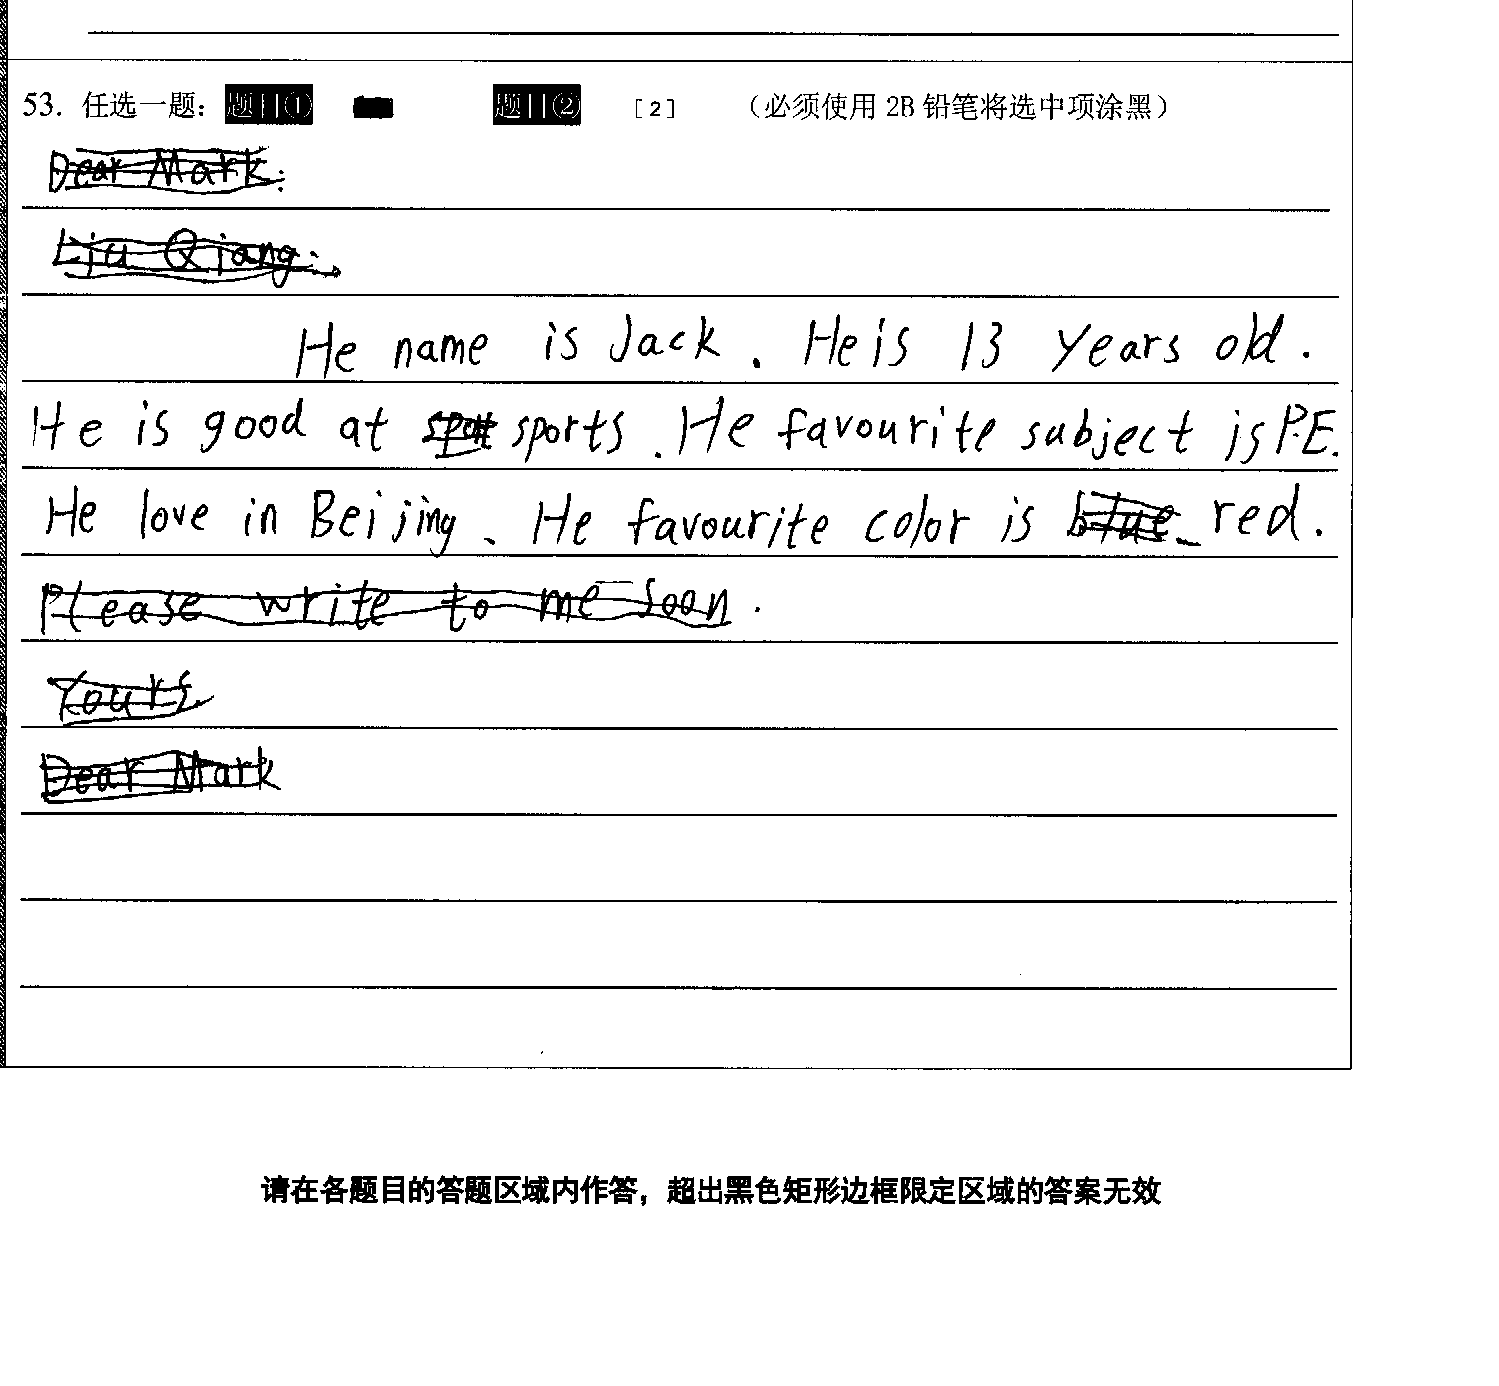 53. 任选一题： 题目① 题目② [2] （必须使用 2B 铅笔将选中项涂黑）
Dear Mark:
Liu Qiang:
He name is Jack. He is 13 years old.
He is good at sport sports. He favourite subject is P.E.
He love in Beijing. He favourite color is blue red.
Please write to me soon.
Yours
Dear Mark
请在各题目的答题区域内作答，超出黑色矩形边框限定区域的答案无效